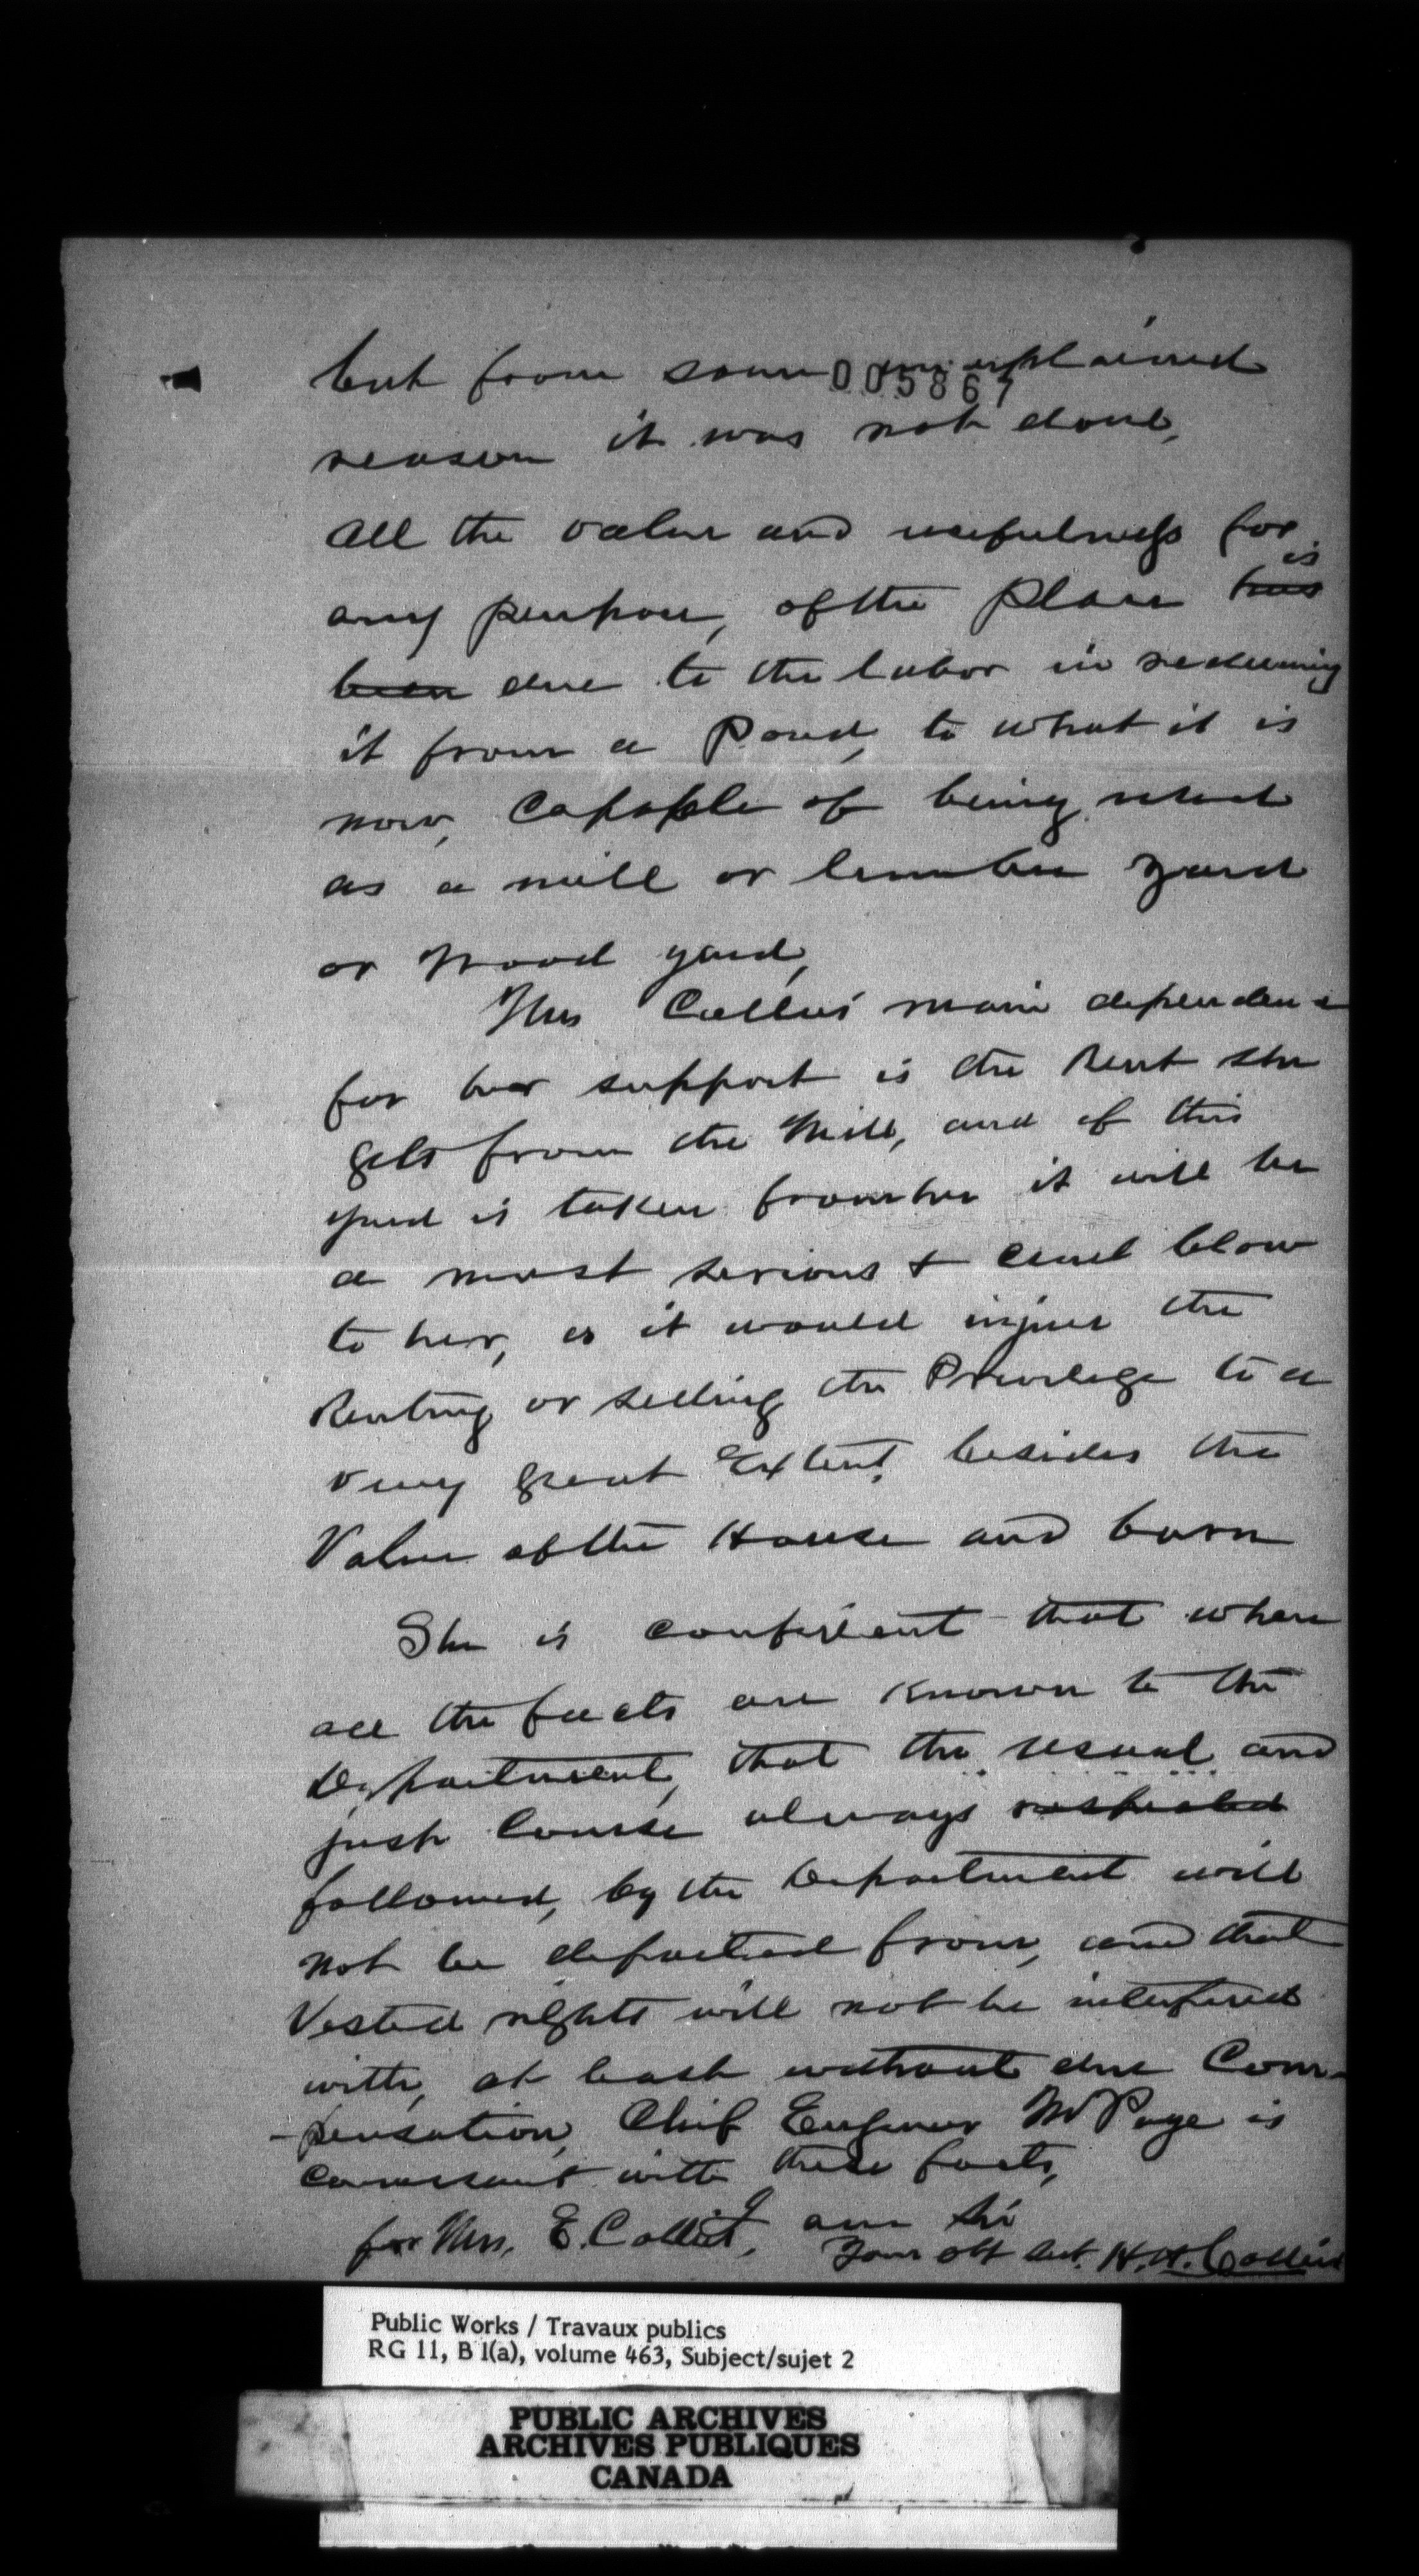 but from some unexplained
005867
reason it was not done,
All the value and usefulness for
is
any purpose, of the place has
been due to the labor in redeeming
it from a Pond, to what it is
now, Capable of being used
as a mill or lumber yard
or Wood yard,
Mrs Collins' main dependence
for her support is the Rent she
gets from the Mill, and if this
yard is taken from her it will be
a most serious & cruel blow
to her, as it would injure the
Renting or selling the Privilege to a
very great Extent, besides the
Value of the House and barn
She is confident that when
all the facts are known to the
Department, that the usual and
just Course always respected
followed, by the Department will
not be departed from, and that
Vested rights will not be interfered
with, at least without due Com-
-pensation, Chief Engineer Mr Page is
conversant with these facts,
for Mrs. E. Collins, I am Sir
Your obt Svt. H. H. Collins
Public Works / Travaux publics
RG 11, B 1(a), volume 463, Subject/sujet 2
PUBLIC ARCHIVES
ARCHIVES PUBLIQUES
CANADA